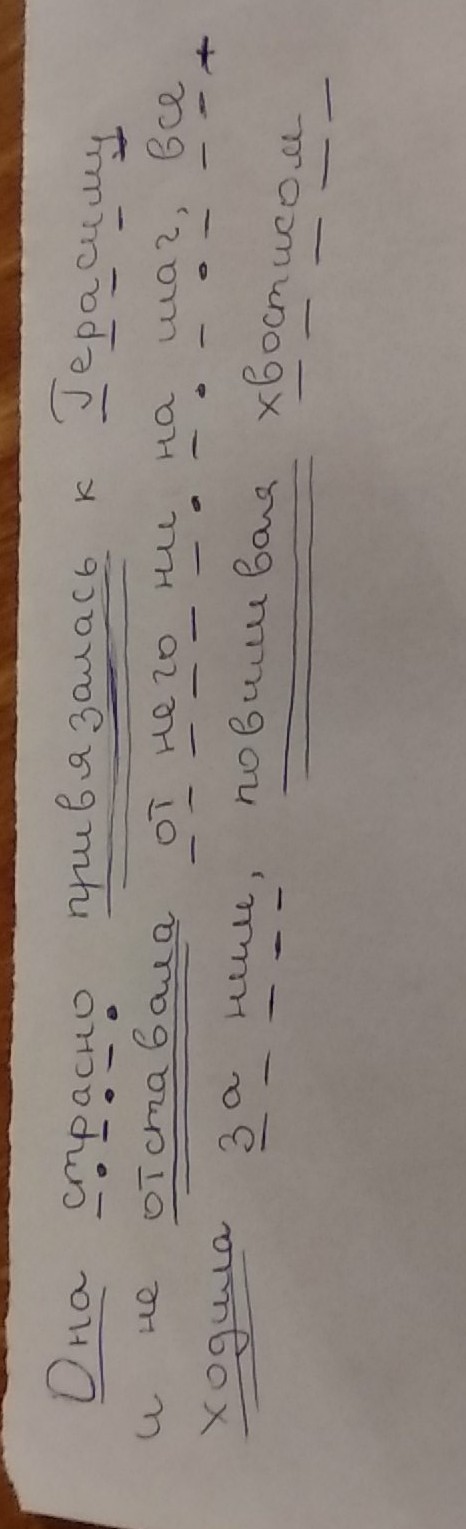 Она страсно привязалась к Герасиму
и не отставала от него ни на шаг, все
ходила за ним, повиливая хвостиком